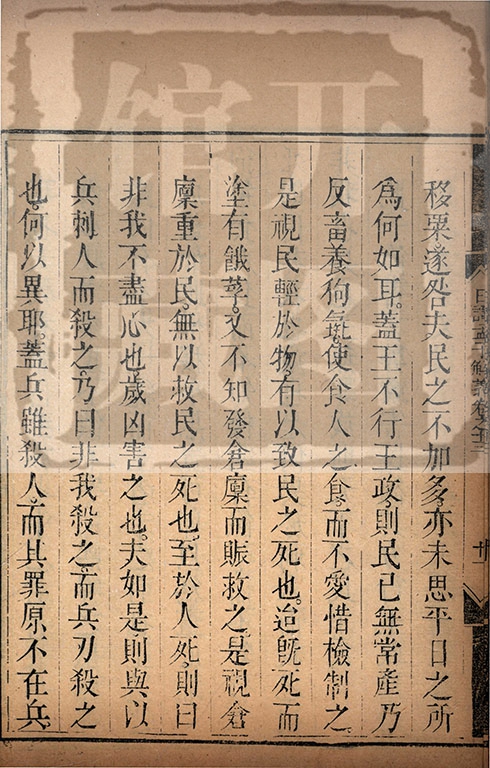 移粟遂咎夫民之不加多亦未思平日之所
為何如耳。蓋王不行王政則民已無常產乃
反畜養狗彘使食人之食而不愛惜檢制之。
是視民輕於物有以致民之死也。迨既死而
塗有餓莩又不知發倉廩而賑救之是視倉
廩重於民無以救民之死也。至於人死則曰
非我不盡心也歲凶害之也。夫如是則與以
兵刺人而殺之乃曰非我殺之而兵刃殺之
也何以異耶。蓋兵雖殺人而其罪原不在兵。
日講四書解義卷之十三